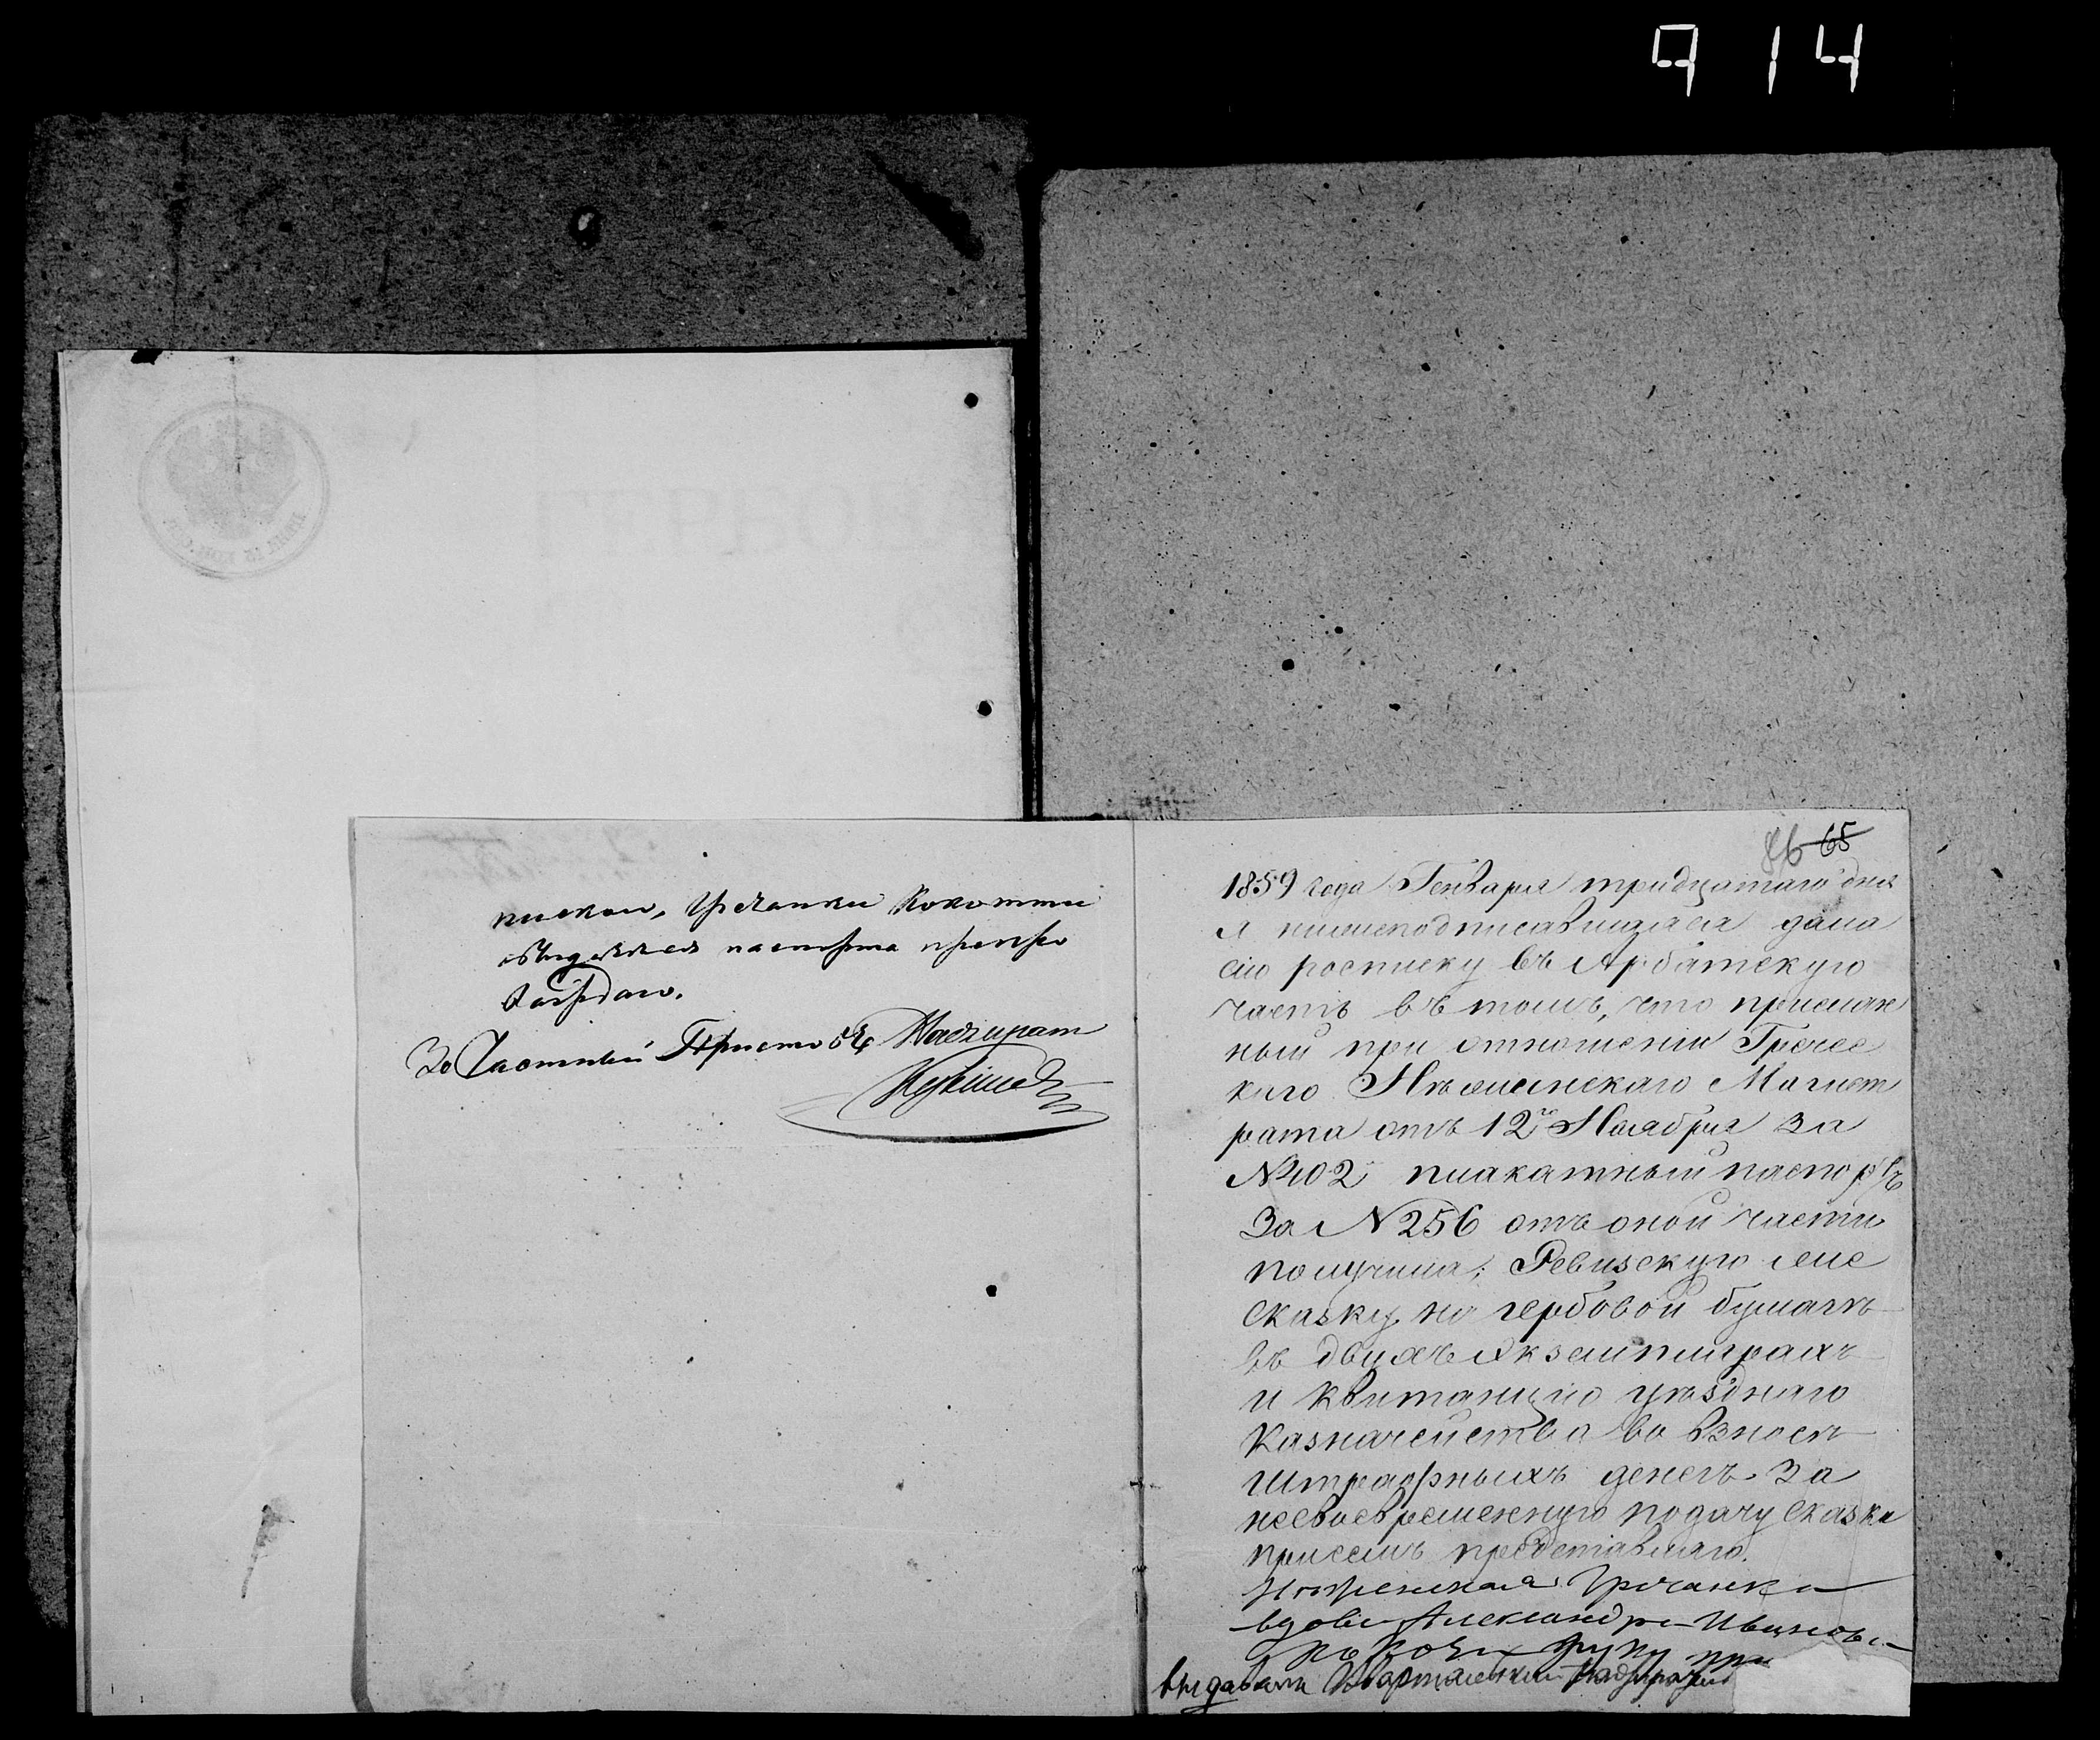 914
пискою, Гречанки Кокотти
выдачею паспорта препро
вождаю.
За Частный Приставъ Надзират
86 65
1859 года Генваря тридцатаго дня
я нижеподписавшаяся дала
сію росписку въ Арбатскую
часть въ томъ, что прислан
ный при отношеніи Гречес
каго Нѣжинскаго Магист
рата отъ 12го Ноября за
№402 плакатный паспортъ
за №256 отъ оной части
получила; Ревизскую же
сказку на гербовой бумагѣ
въ двухъ экземплярахъ
и квитанцію уѣзднаго
казначейства во взносѣ
штрафныхъ денегъ за
несвоевременную подачу сказки
присемъ представляю.
Нѣжинская Гречанка
вдова Александра Иванова
руку при
выдавалъ Квартальный Надзиратель